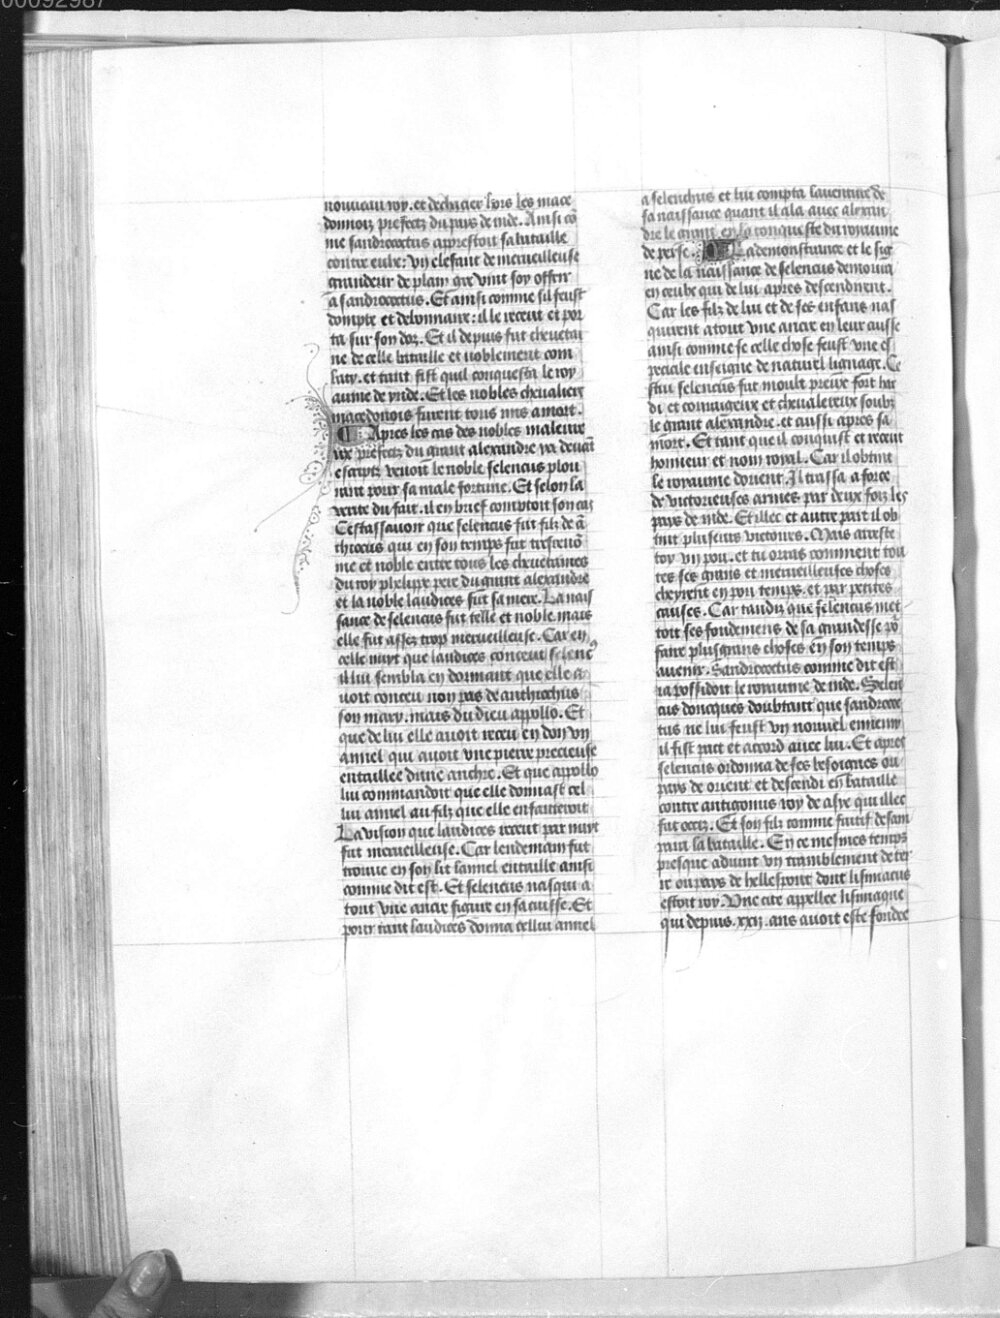 00092987
nouveau roy. et dechacier hors les mace
donnois prefectz du pais de inde. Ainsi cō
me sandrococtus apprestoit sa bataille
contre eulx: vn elefant de merueilleuse
grandeur de plain gre vint soy offrir
a sandrococtus. Et ainsi comme sil feust
dompte et debonnaire: il le receut et por
ta sur son doz. Et il depuis fut cheuetai
ne de celle bataille et noblement com
baty. et tant fist quil conquesta le roy
aume de ynde. Et les nobles cheualiers
macedonois furent tous mis a mort.
Apres les cas des nobles maleure
ux prefectz du grant alexandre ya deuāt
escriptz venoit le noble seleucus plou
rant pour sa male fortune. Et selon la
verite du fait. il en brief comptoit son cas
Cestassauoir que seleucus fut filz de ā
thiocus qui en son temps fut tresrenō
me et noble entre tous les cheuetaines
du roy phelippe pere du grant alexandre
et la noble laudices fut sa mere. La nais
sance de seleucus fut telle et noble mais
elle fut assez trop merueilleuse. Car en
celle nuyt que laudices conceut seleuc9
il lui sembla en dormant que elle a
uoit conceu non pas de anthiochus
son mary. mais du dieu appollo. Et
que de lui elle auoit receu en don vn
annel qui auoit vne pierre precieuse
entaillee dune anchre. Et que appollo
lui commandoit que elle donnast cel
lui annel au filz que elle enfanteroit
La vision que laudices receut par nuyt
fut merueilleuse. Car lendemain fut
trouue en son lit lannel entaille ainsi
comme dit est. Et seleucus nasqui a
tout vne ancre figure en sa cuisse. Et
pour tant laudices donna cellui annel
a seleuchus et lui compta lauenture de
sa naissance quant il ala auec alexan
dre le grant en la conqueste du royaume
de perse. La demonstrance et le sig
ne de la naissance de seleucus demoura
en ceulx qui de lui apres descendirent.
Car les filz de lui et de ses enfans nas
quirent atout vne ancre en leur cuisse
ainsi comme se celle chose feust vne es
peciale enseigne de naturel lignage. Ce
stui seleucus fut moult preux fort har
di et courageux et cheualereux soubz
le grant alexandre. et aussi apres sa
mort. Et tant que il conquist et receut
honneur et nom royal. Car il obtint
le royaume dorient. Il trassa a force
de victorieuses armes par deux foiz les
pays de inde. Et illec et autre part il ob
tint plusieurs victoires. Mais arreste
toy vn pou. et tu orras comment tou
tes ses grans et merueilleuses choses
cheyrent en pou temps. et par petites
causes. Car tandiz que seleucus met
toit ses fondemens de sa grandesse po
faire plusgrans choses en son temps
auenir. Sandrococtus comme dit est
ia possidoit le royaume de inde. Seleu
cus doncques doubtant que sandrococ
tus ne lui feust vn nouuel ennemy
il fist pact et accord auec lui. Et apres
seleucus ordonna de ses besoignes ou
pays de orient et descendi en bataille
contre antigonus roy de asye qui illec
fut occiz. Et son filz comme fuitif desam
para la bataille. En ce mesmes temps
presque aduint vn tramblement de ter
re ou pays de hellespont dont lisimacus
estoit roy. Vne cite appellee lisimaque
qui depuis. xxij. ans auoit este fondee